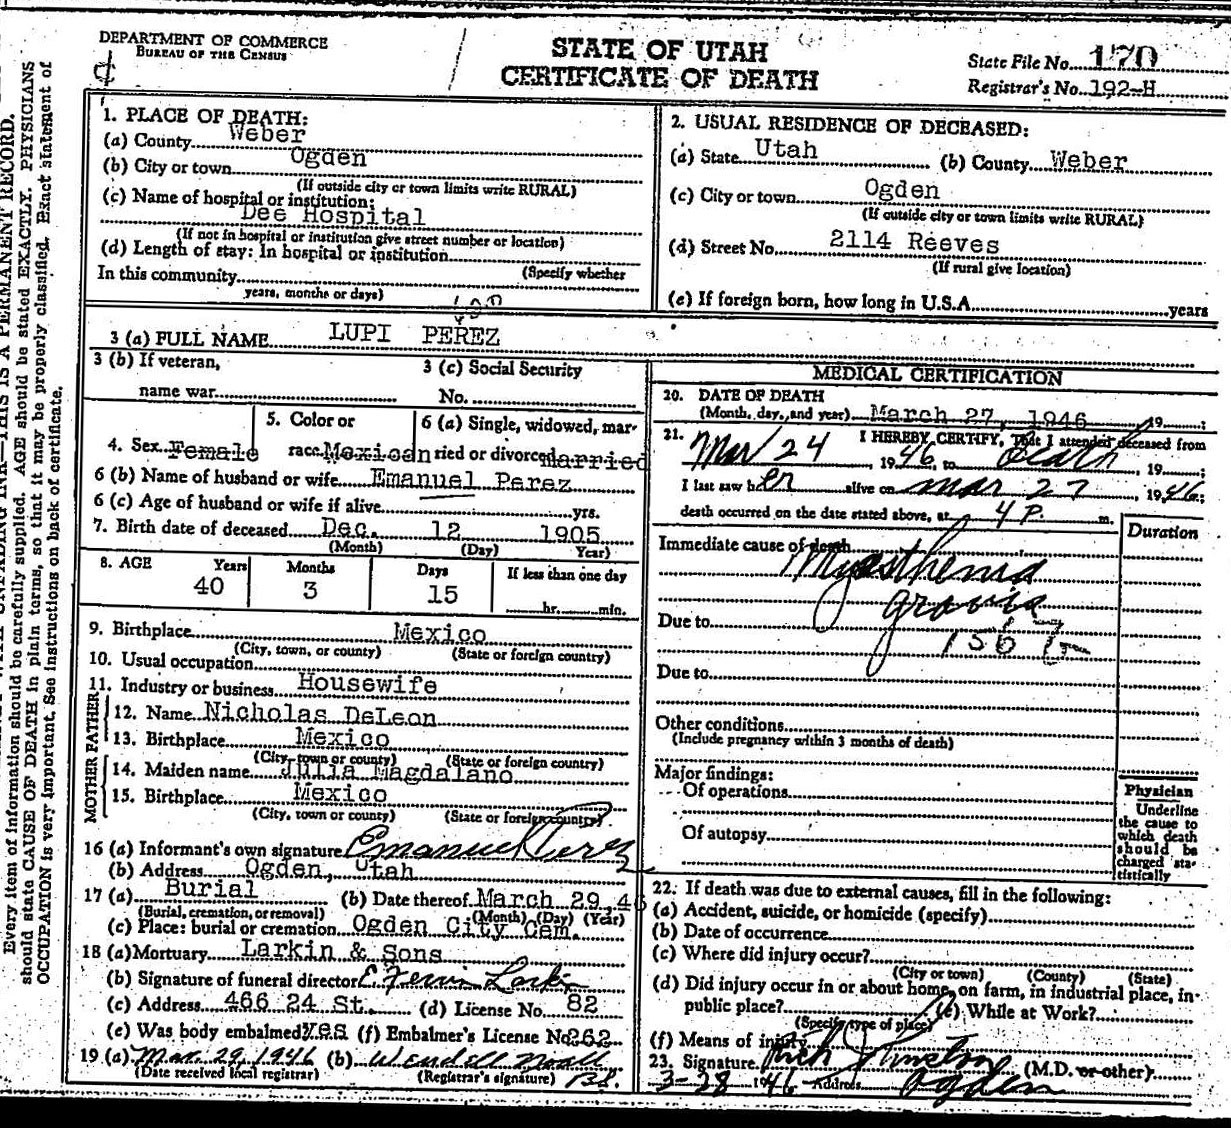 DEPARTMENT OF COMMERCE
BUREAU OF THE CENSUS
STATE OF UTAH
CERTIFICATE OF DEATH
State File No. 170
Registrar's No. 192-H
1. PLACE OF DEATH:
(a) County Weber
(b) City or town Ogden
(If outside city or town limits write RURAL)
(c) Name of hospital or institution:
Dee Hospital
(If not in hospital or institution give street number or location)
(d) Length of stay: In hospital or institution
(Specify whether
In this community
years, months or days)
2. USUAL RESIDENCE OF DECEASED:
(a) State Utah (b) County Weber
(c) City or town Ogden
(If outside city or town limits write RURAL)
(d) Street No. 2114 Reeves
(If rural give location)
(e) If foreign born, how long in U.S.A. years
3 (a) FULL NAME LUPI PEREZ
3 (b) If veteran,
name war
3 (c) Social Security
No.
4. Sex Female
5. Color or
race Mexican
6 (a) Single, widowed, mar-
ried or divorced married
6 (b) Name of husband or wife Emanuel Perez
6 (c) Age of husband or wife if alive yrs.
7. Birth date of deceased Dec. 12 1905
(Month) (Day) Year)
8. AGE Years Months Days If less than one day
40 3 15 hr. min.
9. Birthplace Mexico
(City, town, or county) (State or foreign country)
10. Usual occupation
11. Industry or business Housewife
FATHER
12. Name Nicholas DeLeon
13. Birthplace Mexico
(City, town or county) (State or foreign country)
MOTHER
14. Maiden name Julia Magdalano
15. Birthplace Mexico
(City, town or county) (State or foreign country)
16 (a) Informant's own signature Emanuel Perez
(b) Address Ogden, Utah
17 (a) Burial (b) Date thereof March 29, 46
(Burial, cremation, or removal) (Month) (Day) (Year)
(c) Place: burial or cremation Ogden City Cem.
18 (a) Mortuary Larkin & Sons
(b) Signature of funeral director Larkin
(c) Address 466 24 St. (d) License No. 82
(e) Was body embalmed yes (f) Embalmer's License No 262
19 (a) Mar. 29, 1946 (b) Wendell Noall
(Date received local registrar) (Registrar's signature)
MEDICAL CERTIFICATION
20. DATE OF DEATH
(Month, day, and year) March 27, 1946 19
21. I HEREBY CERTIFY, That I attended deceased from
Mar 24, 1946, to death, 19 ;
I last saw her alive on Mar 27, 1946;
death occurred on the date stated above, at 4 P. m.
Duration
Immediate cause of death
Myasthenia
gravis
Due to
Due to
Other conditions
(Include pregnancy within 3 months of death)
Major findings:
Of operations
Of autopsy
Physician
Underline
the cause to
which death
should be
charged sta-
tistically
22. If death was due to external causes, fill in the following:
(a) Accident, suicide, or homicide (specify)
(b) Date of occurrence
(c) Where did injury occur?
(City or town) (County) (State)
(d) Did injury occur in or about home, on farm, in industrial place, in
public place? (e) While at Work?
(Specify type of place)
(f) Means of injury
23. Signature (M.D. or other)
3-28 1946 Address Ogden
Every item of information should be carefully supplied. AGE should be stated EXACTLY. PHYSICIANS
should state CAUSE OF DEATH in plain terms, so that it may be properly classified. Exact statement of
OCCUPATION is very important. See instructions on back of certificate.